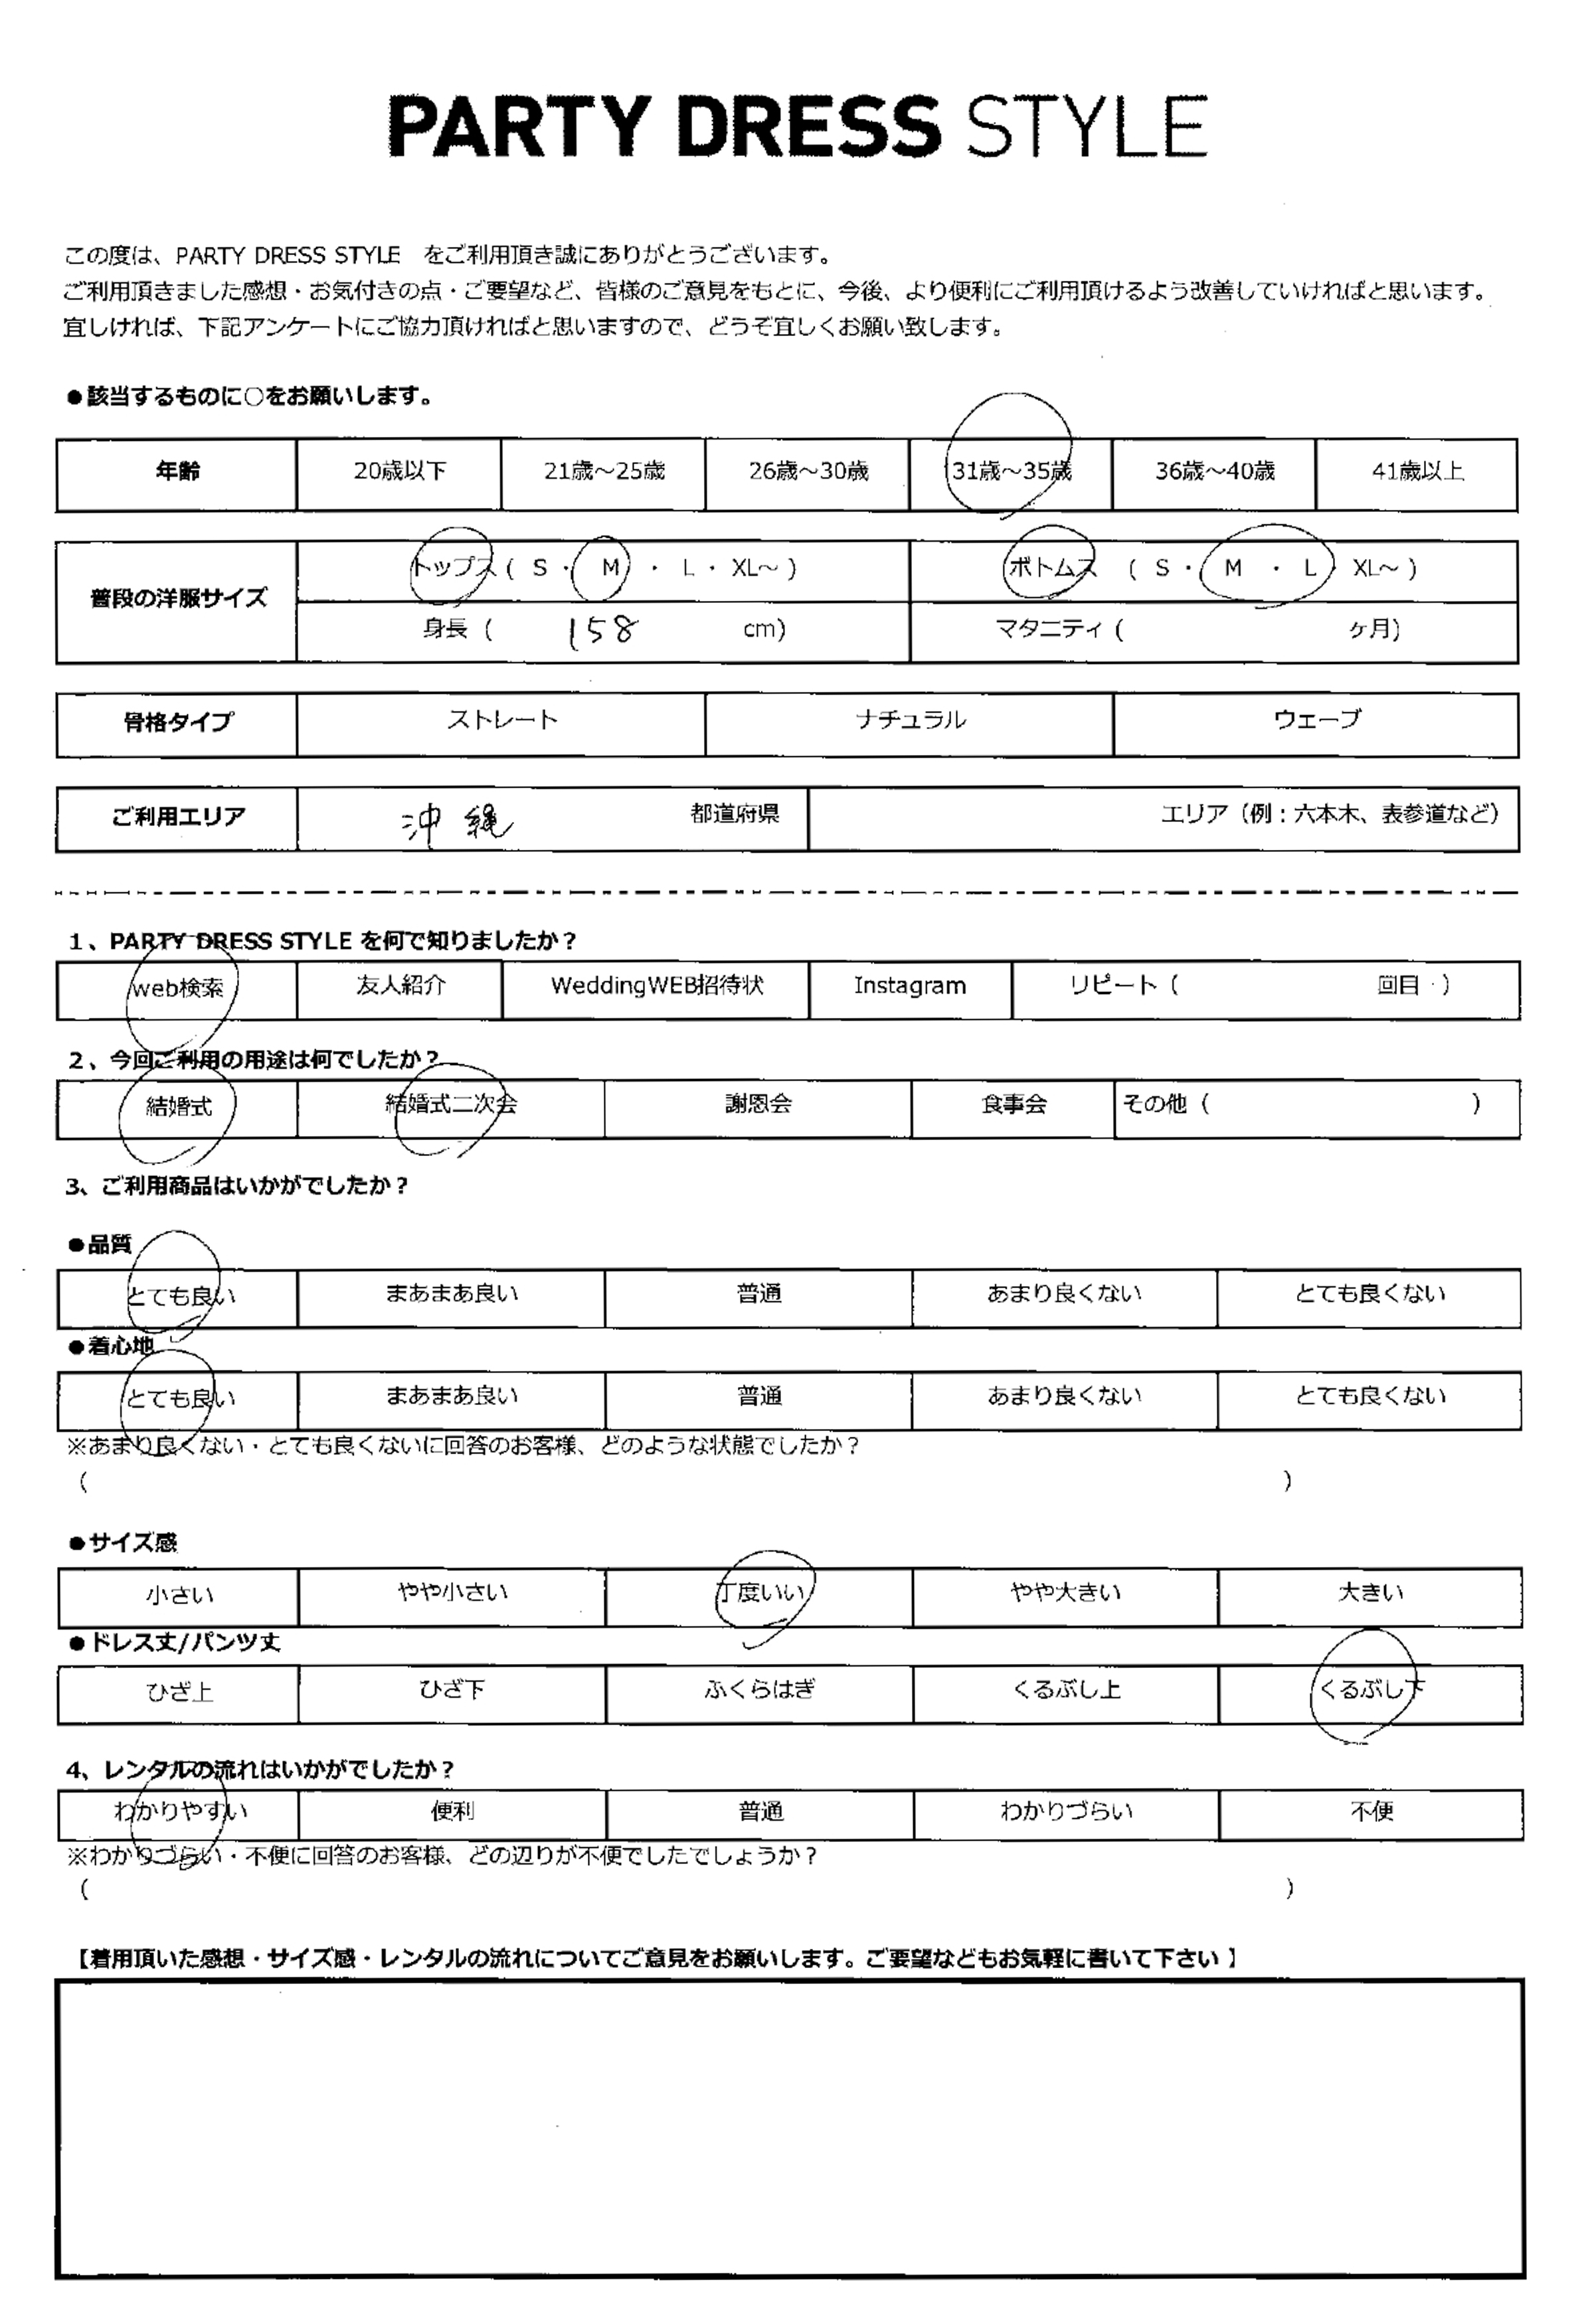 PARTY DRESS STYLE
この度は、PARTY DRESS STYLE をご利用頂き誠にありがとうございます。
ご利用頂きました感想・お気付きの点・ご要望など、皆様のご意見をもとに、今後、より便利にご利用頂けるよう改善していければと思います。
宜しければ、下記アンケートにご協力頂ければと思いますので、どうぞ宜しくお願い致します。
●該当するものに○をお願いします。
年齢 20歳以下 21歳～25歳 26歳～30歳 31歳～35歳 36歳～40歳 41歳以上
普段の洋服サイズ トップス ( S ・ M ・ L ・ XL～ ) ボトムス ( S ・ M ・ L ・ XL～ )
身長 ( 158 cm) マタニティ ( ヶ月)
骨格タイプ ストレート ナチュラル ウェーブ
ご利用エリア 沖縄 都道府県 エリア（例：六本木、表参道など）
1、PARTY DRESS STYLE を何で知りましたか？
web検索 友人紹介 WeddingWEB招待状 Instagram リピート ( 回目 )
2、今回ご利用の用途は何でしたか？
結婚式 結婚式二次会 謝恩会 食事会 その他 ( )
3、ご利用商品はいかがでしたか？
●品質
とても良い まあまあ良い 普通 あまり良くない とても良くない
●着心地
とても良い まあまあ良い 普通 あまり良くない とても良くない
※あまり良くない・とても良くないに回答のお客様、どのような状態でしたか？
( )
●サイズ感
小さい やや小さい 丁度いい やや大きい 大きい
●ドレス丈/パンツ丈
ひざ上 ひざ下 ふくらはぎ くるぶし上 くるぶし下
4、レンタルの流れはいかがでしたか？
わかりやすい 便利 普通 わかりづらい 不便
※わかりづらい・不便に回答のお客様、どの辺りが不便でしたでしょうか？
( )
【着用頂いた感想・サイズ感・レンタルの流れについてご意見をお願いします。ご要望などもお気軽に書いて下さい 】